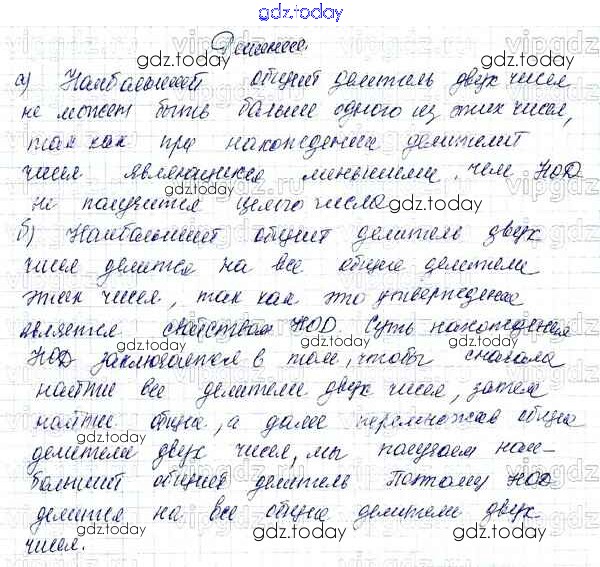 gdz.today
Решение.
а) Наибольший общий делитель двух чисел
не может быть больше одного из этих чисел,
так как при нахождении делителей
чисел являющихся меньшими, чем НОД
не получится целого числа
б) Наибольший общий делитель двух
чисел делится на все общие делители
этих чисел, так как это утверждение
является свойством НОД. Суть нахождения
НОД заключается в том, чтобы сначала
найти все делители двух чисел, затем
найти общие, а далее перемножив общие
делители двух чисел, мы получаем наи-
больший общий делитель Поэтому НОД
делится на все общие делители двух
чисел.